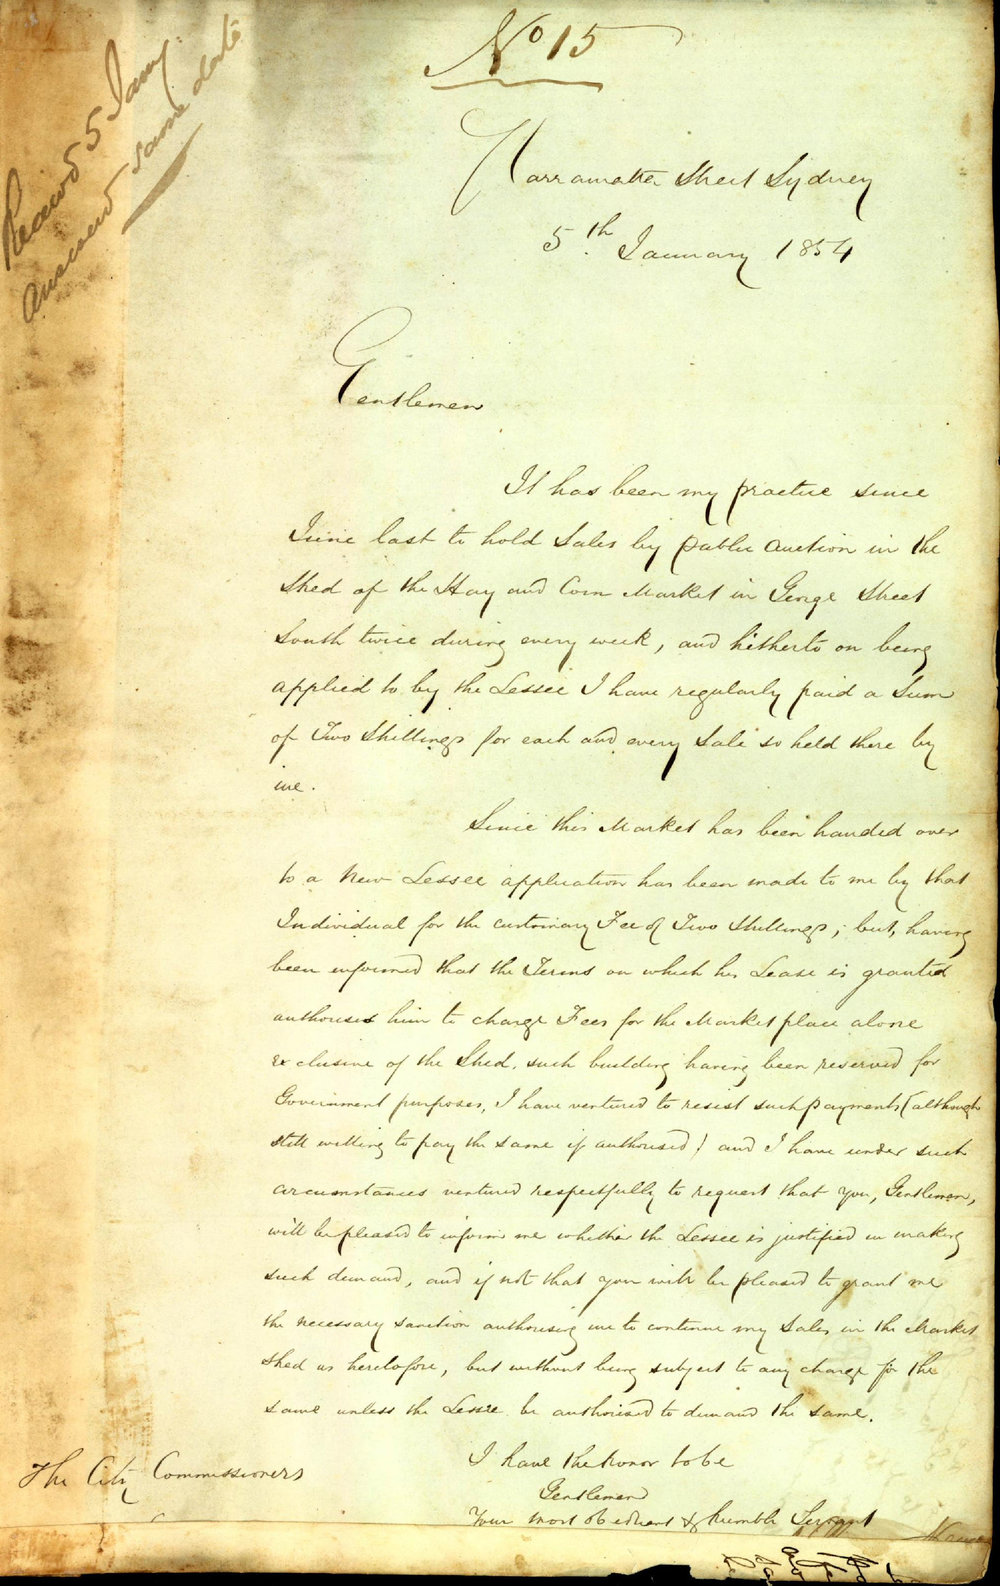 No 15
Received 5 Jany
answered same date
Parramatta Street Sydney
5th January 1854
Gentlemen
It has been my practice since
June last to hold Sales by public auction in the
Shed of the Hay and Corn Market in George Street
South twice during every week, and hitherto on being
applied to by the Lessee I have regularly paid a Sum
of Two Shillings for each and every Sale so held there by
me.
Since this Market has been handed over
to a New Lessee application has been made to me by that
Individual for the customary Fee of Two Shillings; but, having
been informed that the Terms on which his Lease is granted
authorises him to charge Fees for the Market place alone
exclusive of the Shed, such building having been reserved for
Government purposes, I have ventured to resist such payments (although
still willing to pay the same if authorised) and I have under such
circumstances ventured respectfully to request that you, Gentlemen,
will be pleased to inform me whether the Lessee is justified in making
such demand, and if not that you will be pleased to grant me
the necessary sanction authorising me to continue my Sales in the Market
Shed as heretofore, but without being subject to any charge for the
same unless the Lessee be authorised to demand the same.
I have the honor to be
Gentlemen
Your most obedient & humble Servant
The City Commissioners